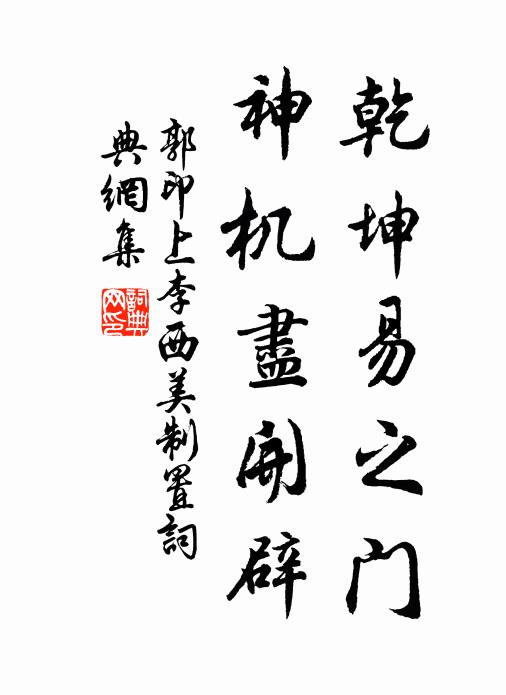 乾坤易之门
神机盡開辟
郭印上李西美制置詞
典網集
詞典网印